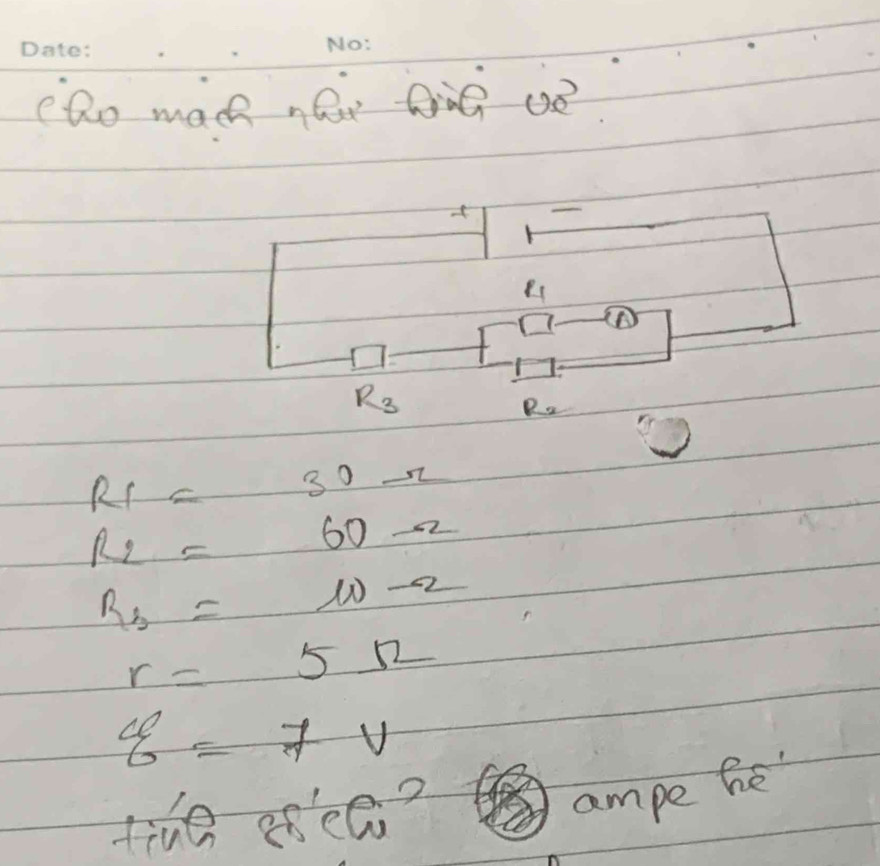 Date: No:
Cho mạch như hình vẽ
+ −
R1
A
R3 R2
R1 = 30 Ω
R2 = 60 Ω
R3 = 10 Ω
r = 5 Ω
ℰ = 7 V
tính số chỉ ampe kế